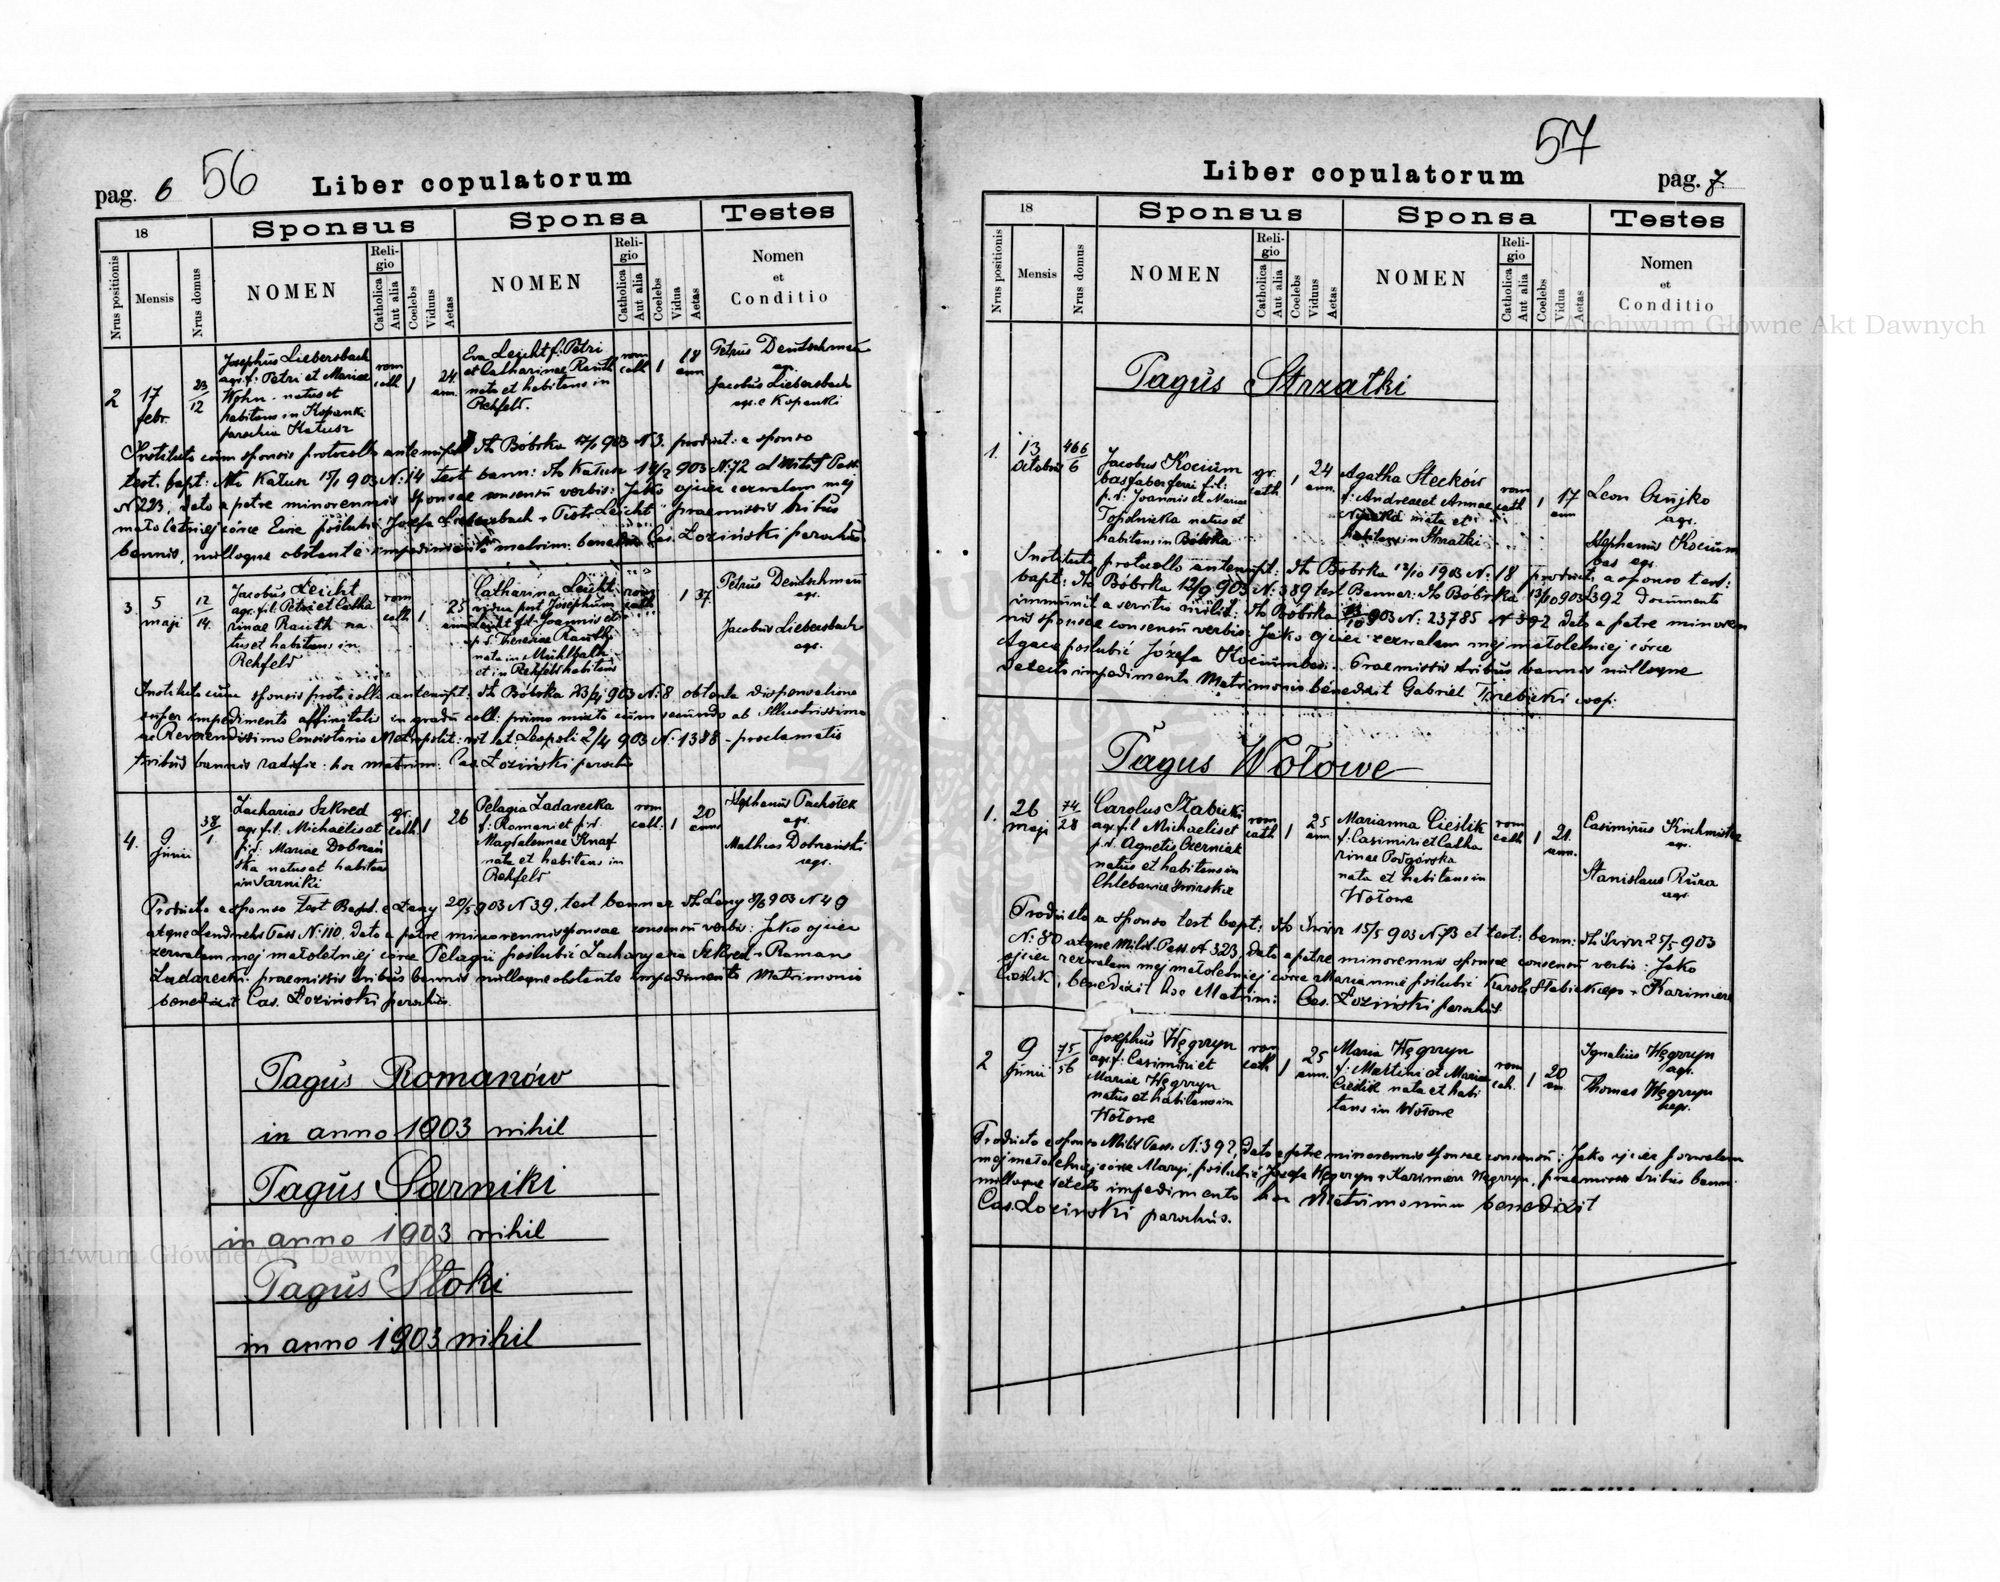 pag. 6 56 Liber copulatorum
18 Sponsus Sponsa Testes
Nrus positionis Mensis Nrus domus NOMEN Religio Catholica Aut alia Coelebs Viduus Aetas NOMEN Religio Catholica Aut alia Coelebs Vidua Aetas Nomen et Conditio
2 17 febr. 23/12
Josephus Liebersbach
agr. f: Petri et Mariae
Wohn. natus et
habitans in Kopanki
parochia Kałusz
rom cath 1 24 ann.
Eva Leicht f. Petri
et Catharinae Rauth
nata et habitans in
Rehfeld.
rom cath 1 18 ann
Petrus Deutschman
agr.
Jacobus Liebersbach
agr. e Kopanki
Instituto cum sponsis protocollo antenupt. dto Bóbrka 903 N 3. product: a sponso
test. bapt: dto Kałusz 903 N: 14 test bann: dto Kałusz 903 N: 72 et Milit Pass.
N 223, dato a patre minorennis sponsae consensu verbis: Jako ojciec zezwalam mej
małoletniej córce Ewie poślubić Józefa Liebersbach - Piotr Leicht praemissis tribus
bannis, nulloque obstante impedimento matrim: benedixit Cas. Łoziński parochus
3. 5 maji 12/14
Jacobus Leicht
agr. fil. Petri et Catha
rinae Rauth na
tus et habitans in
Rehfeld
rom cath 1 25 ann
Catharina Leicht
vidua post Josephum
Leicht fil. Joannis et
p. d. Theresiae Rauth
nata in Mühlbach
et in Rehfeld habitans
rom cath 1 37.
Petrus Deutschman
agr.
Jacobus Liebersbach
agr.
Instituto cum sponsis protocollo antenupt: dto Bóbrka 23/4 903 N: 8 obtenta dispensatione
super impedimento affinitatis in gradu coll: primo mixto cum secundo ab Illustrissimo
ac Reverendissimo Consistorio Metropolit: rit lat: Leopoli 2/4 903 N: 1388 - proclamatis
tribus bannis hoc matrim: Cas. Łoziński parochus
4. 9 Junii 38/1
Zacharias Szkred
agr. fil. Michaelis et
p. d. Mariae Dobrzań
ska natus et habitans
in Sarniki
gr. cath 1 26
Pelagia Zadarecka
f: Romani et p. d.
Magdalenae Knaf
nata et habitans in
Rehfeld
rom cath: 1 20 anns
Stephanus Pachołek
agr.
Matheus Dobrzański
agr.
Producto a sponso test Bapt. e Łany 20/5 903 N 39, test bannor dto Łany 8/6 903 N 49
atque Landwehr Pass N: 110, dato a patre minorennis sponsae consensu verbis: Jako ojciec
zezwalam mej małoletniej córce Pelagii poślubić Zacharyasza Szkred - Roman
Zadarecki. praemissis tribus bannis nulloque obstante impedimento Matrimonio
benedixit Cas. Łoziński parochus.
Pagus Romanów
in anno 1903 nihil
Pagus Sarniki
in anno 1903 nihil
Pagus Stoki
in anno 1903 nihil
57
Liber copulatorum pag. 7.
18 Sponsus Sponsa Testes
Nrus positionis Mensis Nrus domus NOMEN Religio Catholica Aut alia Coelebs Viduus Aetas NOMEN Religio Catholica Aut alia Coelebs Vidua Aetas Nomen et Conditio
Pagus Strzałki
1. 13 Octobris 466/6
Jacobus Kocium
bas faber ferri fil:
p. d: Joannis et Mariae
natus et
habitans in Bóbrka
gr. cath 1 24 ann.
Agatha Stecków
f: Andreae et Annae
nata et
habitans in Strzałki
rom cath 1 17 ann
Leon
agr.
Stephanus Kocium
bas agr.
Instituto protocollo antenupt: dto Bóbrka 12/10 1903 N: 18 producto a sponso test:
bapt: dto Bóbrka 12/9 903 N: 389 test Bannor: dto Bóbrka 13/10 903 392 documento
immunit a servitio milit: dto Bóbrka 903 N: 23785 N 392 dato a patre minoren
nis sponsae consensu verbis: Jako ojciec zezwalam mej małoletniej córce
Agacie poslubić Józefa Kociumbas. Praemissis tribus bannis nulloque
detecto impedimento Matrimonio benedixit Gabriel Trebicki coop.
Pagus Wołowe
1. 26 maji 74/28
Carolus Słabicki
agr. fil Michaelis et
p. d. Agnetis Czerniak
natus et habitans in
Chlebowice Swirskie
rom cath 1 25 ann
Marianna Cieślik
f: Casimiri et Catha
rinae Podgórska
nata et habitans in
Wołowe
rom cath 1 21 ann.
Casimirus Kirchmister
agr.
Stanislaus Rura
agr.
Producto a sponso test bapt: dto Swirz 15/5 903 N. 73 et test: bann: dto Swirz 25/5 903
N: 80 atque Milit. Pass. N 323, dato a patre minorennis sponsae consensu verbis: Jako
ojciec zezwalam mej małoletniej córce Maryannie poślubić Karola Słabickiego - Kazimierz
Cieślik, benedixit hoc Matrim: Cas. Łoziński parochus
2 9 Junii 75/56
Josephus Węgrzyn
agr. f. Casimiri et
Mariae Węgrzyn
natus et habitans in
Wołowe
rom cath 1 25 ann.
Maria Węgrzyn
f: Martini et Mariae
Cieślik nata et habi
tans in Wołowe
rom cath. 1 20 an.
Ignatius Węgrzyn
agr.
Thomas Węgrzyn
agr.
Producto a sponso Milit Pass. N: 392, dato a patre minorennis sponsae consensu: Jako ojciec pozwalam
mej małoletniej córce Maryi, poślubić Józefa Węgrzyn - Kazimierz Węgrzyn, praemissis tribus bannis
nulloque detecto impedimento hoc Matrimonium benedixit
Cas. Łoziński parochus.
Archiwum Główne Akt Dawnych
Archiwum Główne Akt Dawnych